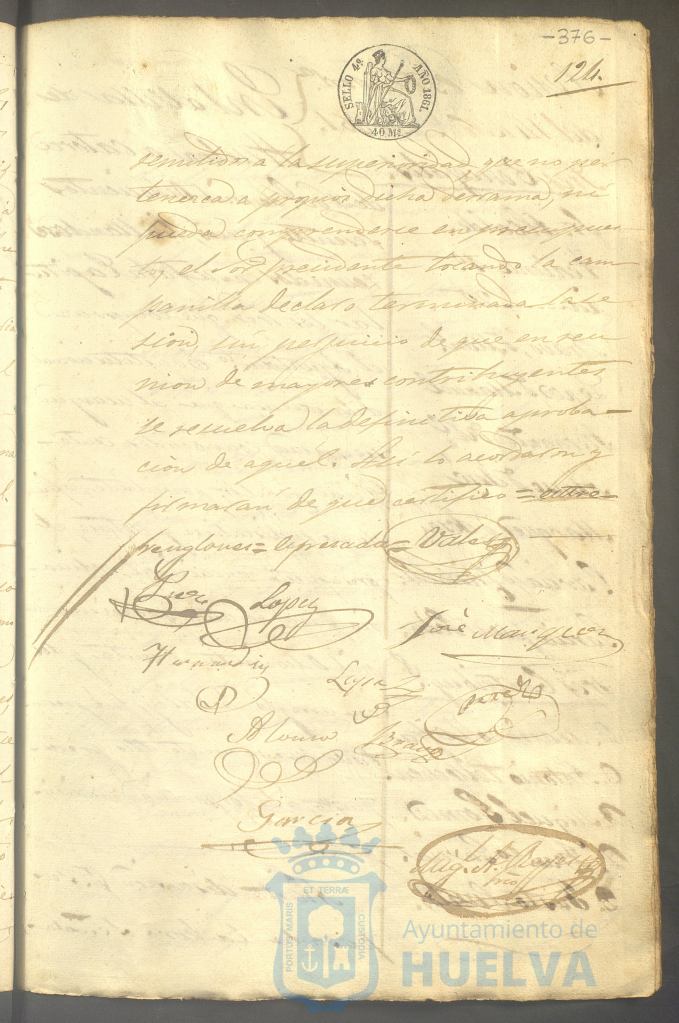 -376-
124.
SELLO 4º AÑO 1861.
40 Ms
remitiese a la superioridad que no per
tenezca a propios dicha derrama, ni
pueda comprenderse en presupues
to, el Sor. presidente tocando la cam
panilla declaro terminada la se
sion, sin perjuicio de que en reu
nion de mayores contribuyentes
se resuelva la definitiva aproba=
cion de aquel. Asi lo acordaron y
firmaran de que certifico = entre
renglones = epresada = Vale
Lopez
José Marquez
Hernandez
Alonso Bravo
Garcia
PORTUS MARIS ET TERRÆ CUSTODIA
Ayuntamiento de
HUELVA